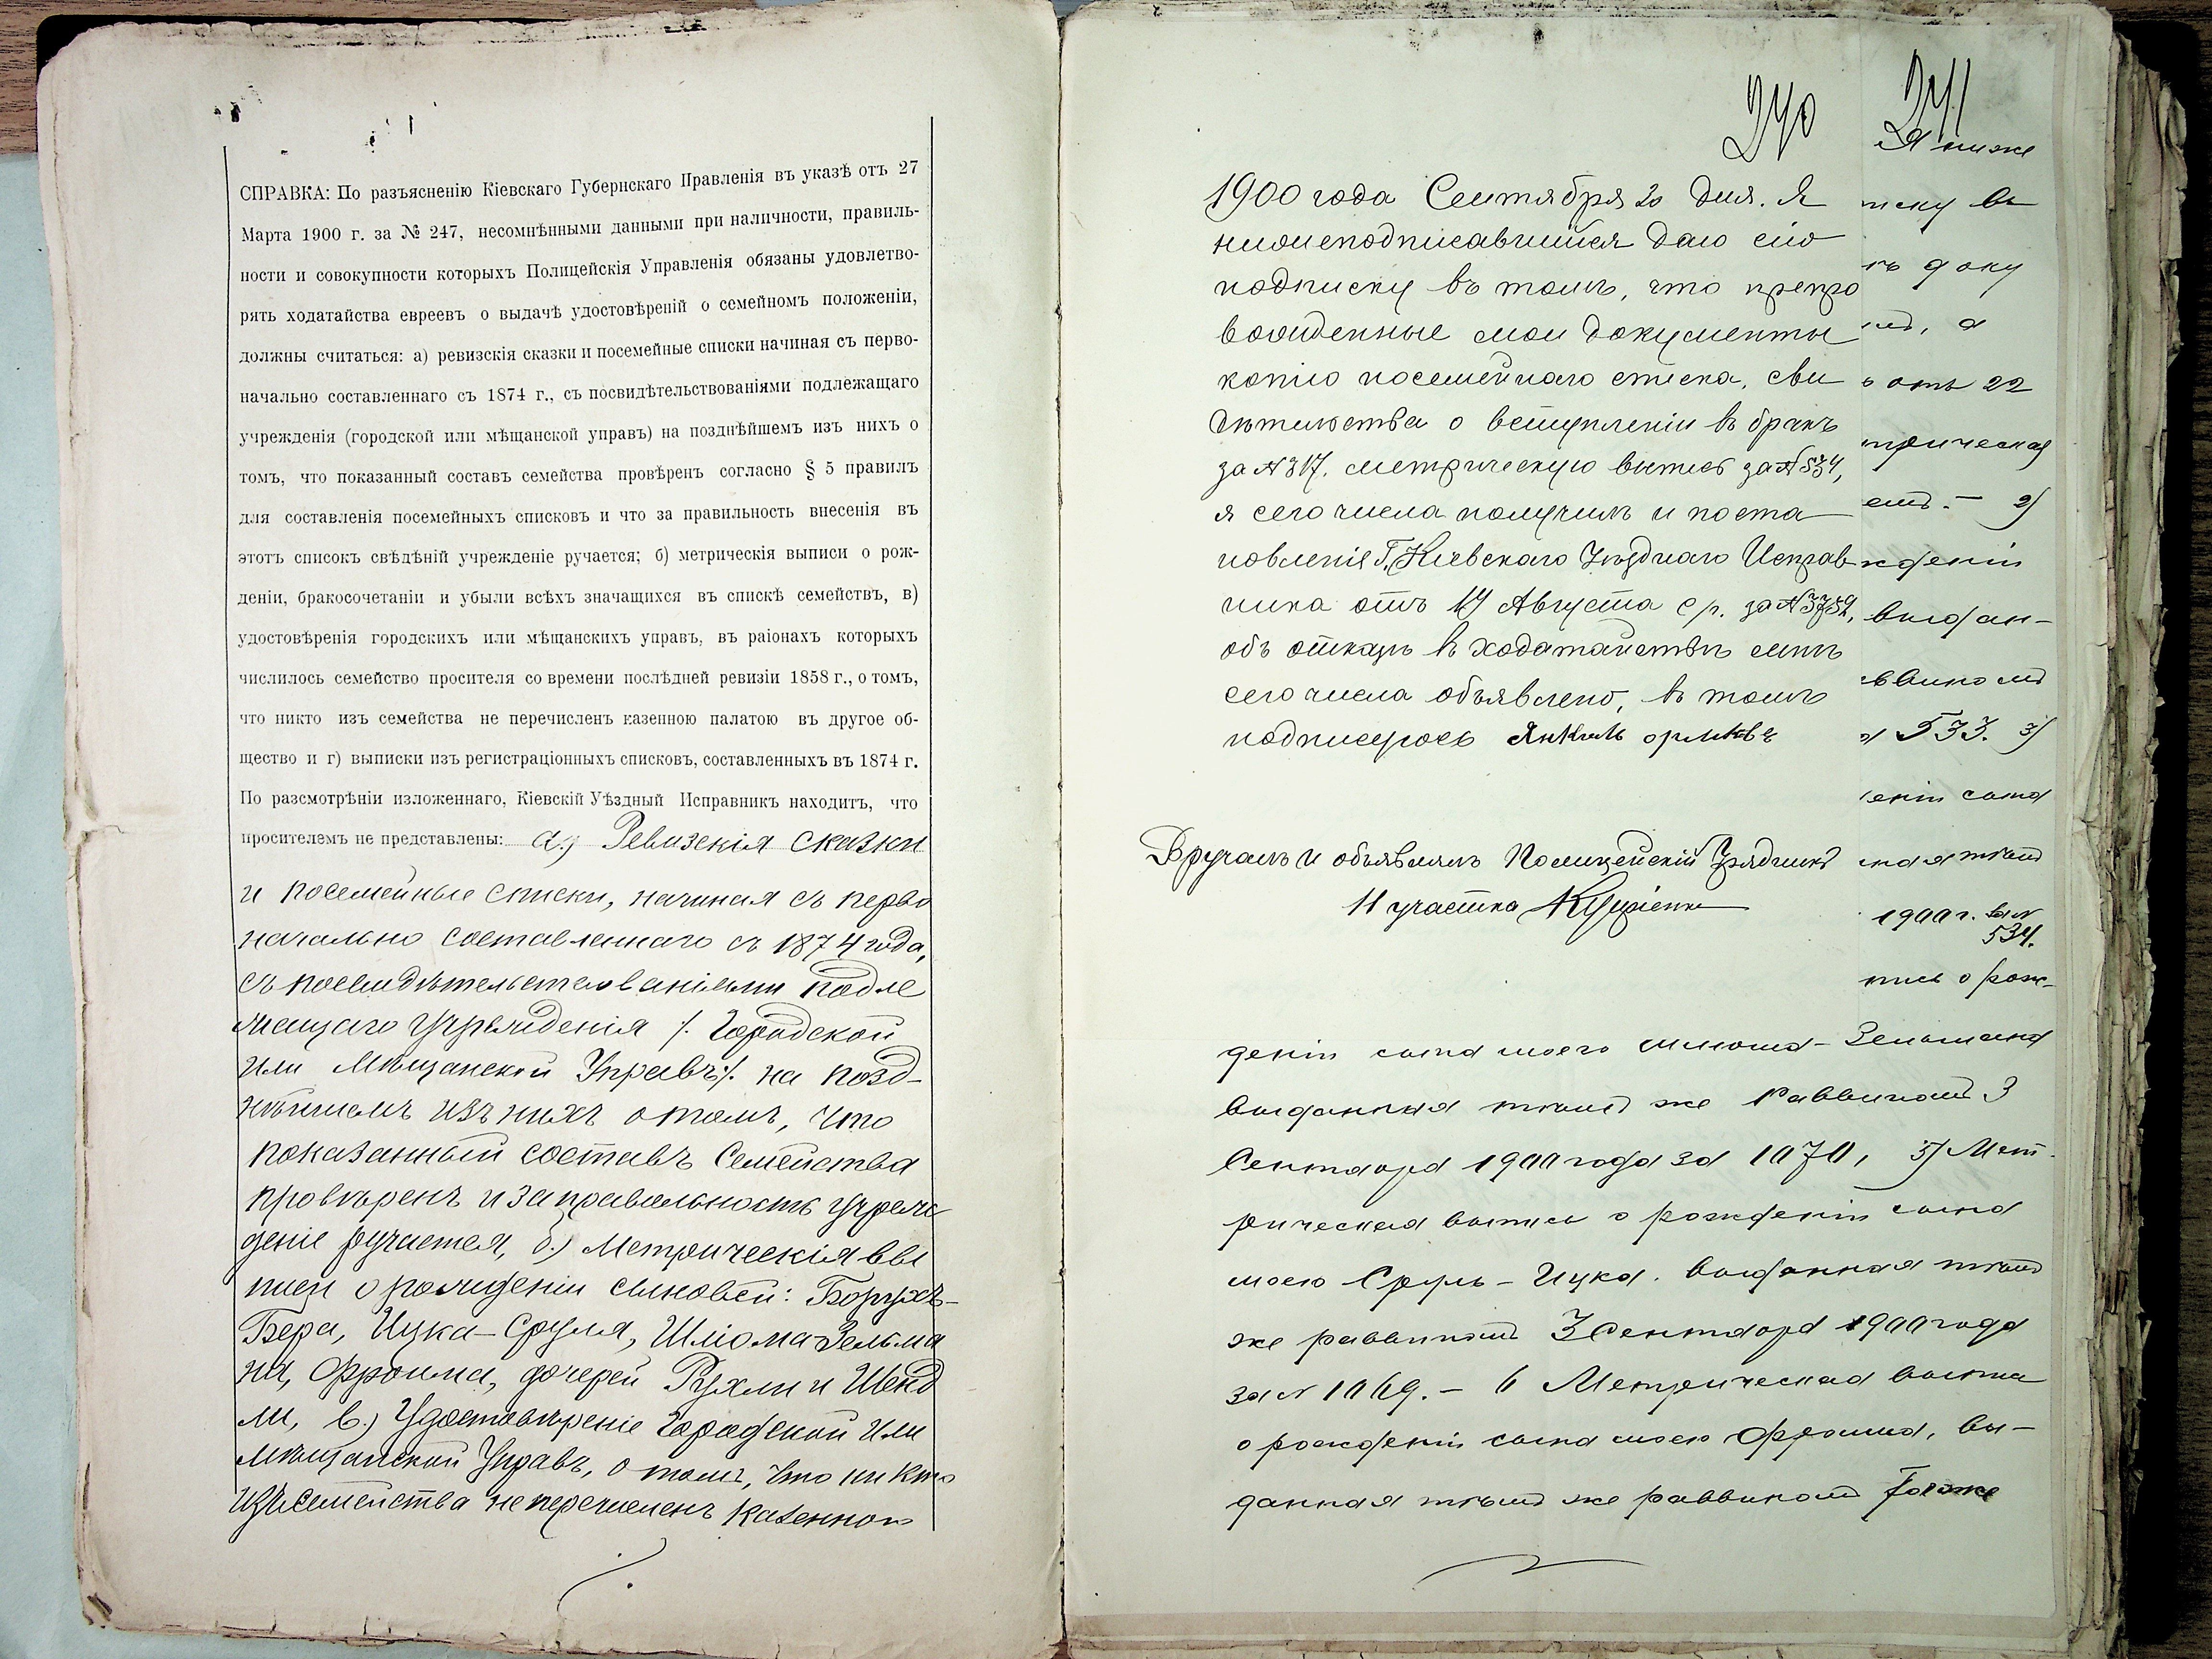 СПРАВКА: По разъясненію Кіевскаго Губернскаго Правленія въ указѣ отъ 27
Марта 1900 г. за № 247, несомнѣнными данными при наличности, правиль-
ности и совокупности которыхъ Полицейскія Управленія обязаны удовлетво-
рять ходатайства евреевъ о выдачѣ удостовѣреній о семейномъ положеніи,
должны считаться: а) ревизскія сказки и посемейные списки начиная съ перво-
начально составленнаго съ 1874 г., съ посвидѣтельствованіями подлежащаго
учрежденія (городской или мѣщанской управъ) на позднѣйшемъ изъ нихъ о
томъ, что показанный составъ семейства провѣренъ согласно § 5 правилъ
для составленія посемейныхъ списковъ и что за правильность внесенія въ
этотъ списокъ свѣдѣній учрежденіе ручается; б) метрическія выписи о рож-
деніи, бракосочетаніи и убыли всѣхъ значащихся въ спискѣ семействъ, в)
удостовѣренія городскихъ или мѣщанскихъ управъ, въ раіонахъ которыхъ
числилось семейство просителя со времени послѣдней ревизіи 1858 г., о томъ,
что никто изъ семейства не перечисленъ казенною палатою въ другое об-
щество и г) выписки изъ регистраціонныхъ списковъ, составленныхъ въ 1874 г.
По разсмотрѣніи изложеннаго, Кіевскій Уѣздный Исправникъ находитъ, что
просителемъ не представлены: а.) Ревизскія сказки
и посемейные списки, начиная съ перво
начально составленнаго съ 1874 года,
съ посвидѣтельствованіями подле
жащаго учрежденія /. Городской
или Мѣщанской Управъ /. на позд-
нѣйшемъ изъ нихъ о томъ, что
показанный составъ Семейства
провѣренъ и за правильность учреж
деніе ручается, б.) Метрическія вы
писи о рожденіи сыновей: Борухъ-
Бера, Ицка-Сруля, Шліома Зельма
на, Фроима, дочерей Рухли и Шенд
ли, в.) Удостовѣреніе Городской или
Мѣщанской Управъ, о томъ, что ни кто
изъ Семейства не перечисленъ казенною
240
1900 года Сентября 20 дня. Я
нижеподписавшийся даю сію
подписку въ томъ, что препро
вожденные мои документы
копію посемейнаго списка, сви
дѣтельства о вступленіи въ бракъ
за № 317. метрическую выпись за № 534,
я сего числа получилъ и поста
новленія Г. Кіевскаго Уѣзднаго Исправ
ника отъ 17 Августа с. г. за № 3759,
объ отказѣ въ ходатайствѣ мнѣ
сего числа объявлено, въ томъ
подписуюсь Янкель
Вручалъ и объявлялъ Полицейскій Урядникъ
11 участка
241
Я ниже
писку въ
доку
а
отъ 22
трическая
2)
жденіи
выдан-
ввиномъ
533. 3)
деніи сына
ная тѣмъ
1900 г. за №
534.
пись о рож-
деніи сына моего Шліома-Зельмана
выданная тѣмъ же Раввиномъ 3
Сентября 1900 года за 1070, 5) Мет
рическая выпись о рожденіи сына
моего Сруль-Ицка. выданная тѣмъ
же раввиномъ 3 Сентября 1900 года
за № 1069. - 6 Метрическая выпись
о рожденіи сына моего Фроима, вы-
данная тѣмъ же раввиномъ